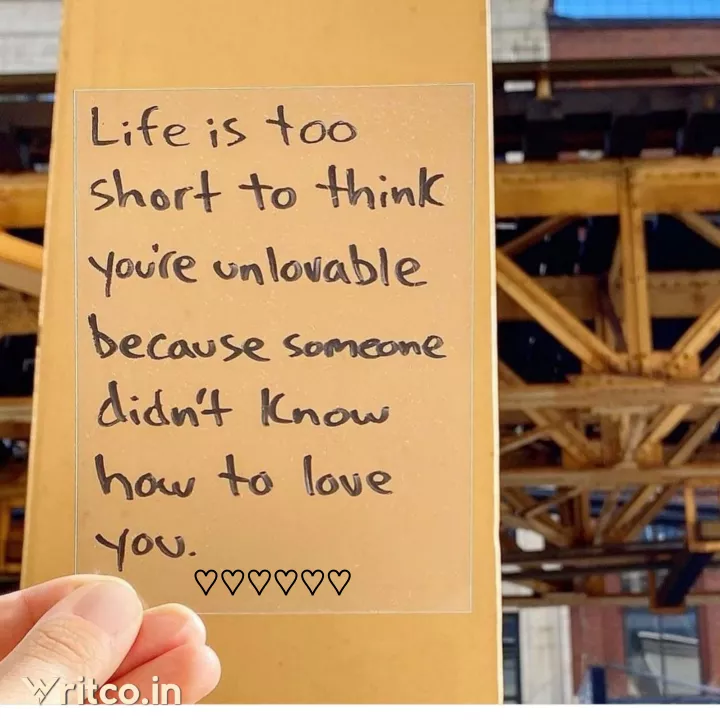 Life is too
short to think
you're unlovable
because someone
didn't know
how to love
you.
♡♡♡♡♡♡
Writco.in